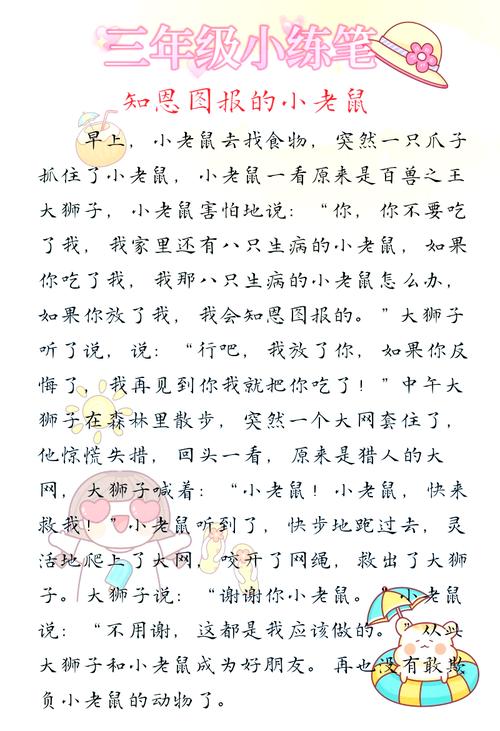 三年级小练笔
知恩图报的小老鼠
早上，小老鼠去找食物，突然一只爪子
抓住了小老鼠，小老鼠一看原来是百兽之王
大狮子，小老鼠害怕地说：“你，你不要吃
了我，我家里还有八只生病的小老鼠，如果
你吃了我，我那八只生病的小老鼠怎么办，
如果你放了我，我会知恩图报的。”大狮子
听了说，说：“行吧，我放了你，如果你反
悔了，我再见到你我就把你吃了！”中午大
狮子在森林里散步，突然一个大网套住了，
他惊慌失措，回头一看，原来是猎人的大
网，大狮子喊着：“小老鼠！小老鼠，快来
救我！”小老鼠听到了，快步地跑过去，灵
活地爬上了大网，咬开了网绳，救出了大狮
子。大狮子说：“谢谢你小老鼠。”小老鼠
说：“不用谢，这都是我应该做的。”从此
大狮子和小老鼠成为好朋友。再也没有敢欺
负小老鼠的动物了。